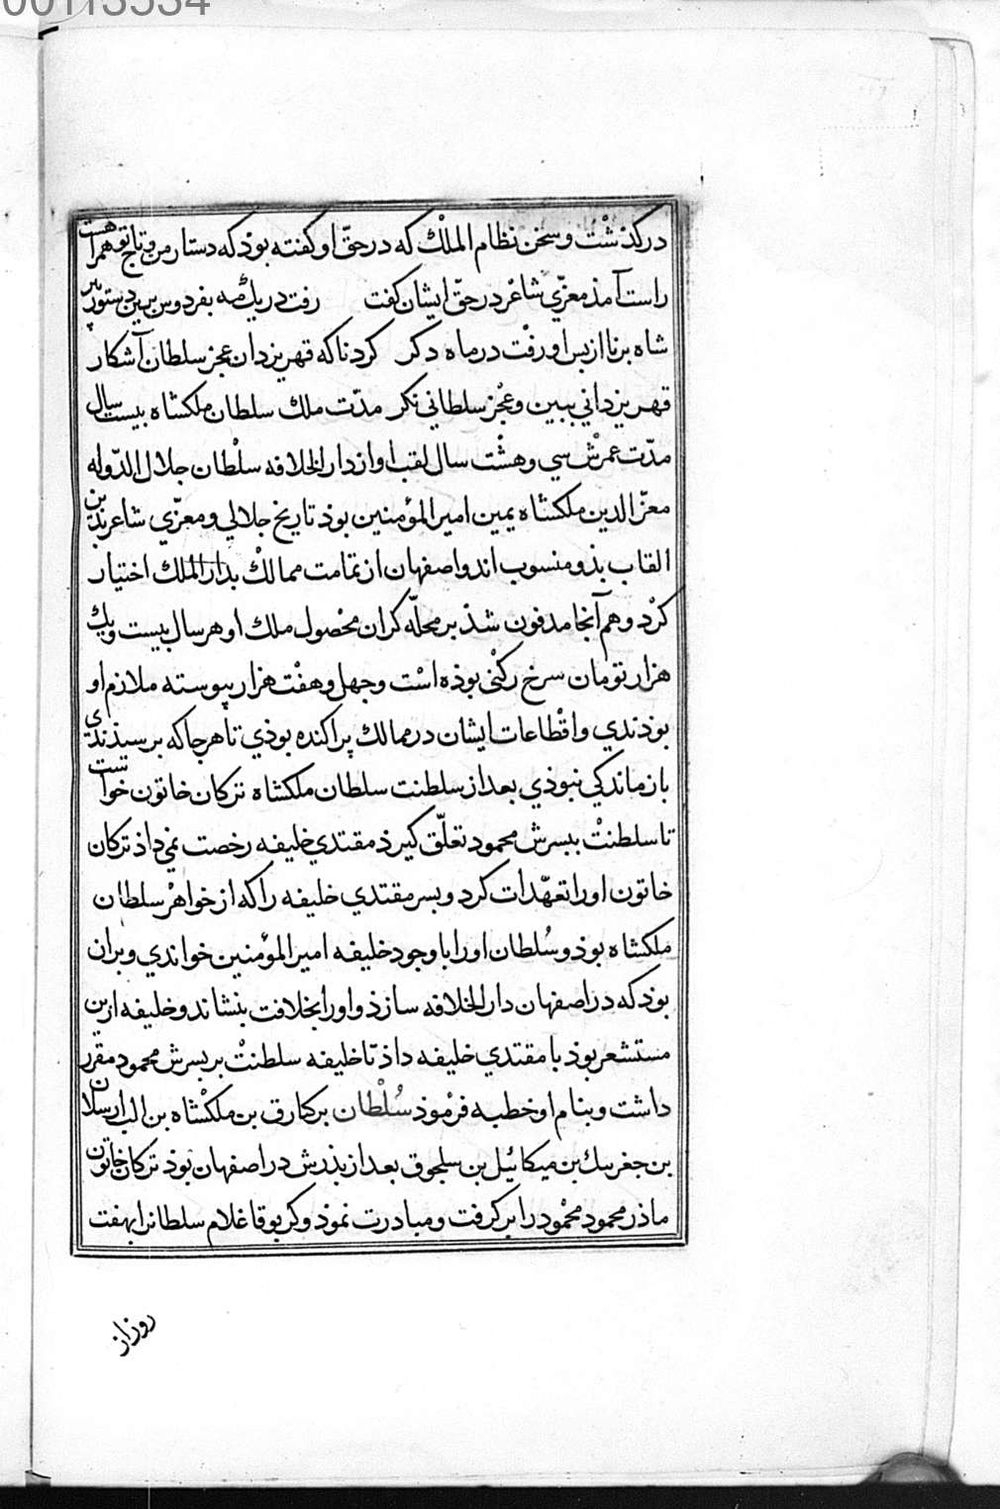 00113534
درکذشْت و سخن نظام الملْك که در حقّ او کفته بوذ که دستار من و تاج تو همراهست
راست آمذ معزّي شاعر در حقّ ایشان کفت رفت در یك مه بفردوس برین دستور پیر
شاه برنا از پس او رفْت در ماه دکر کرد ناکه قهر یزدان عجز سلطان آشکار
قهر یزداني ببین و عجْز سلطاني نکر مدّت ملك سلطان ملکشاه بیست سال
مدّت عمرْش سي و هشْت سال لقب او از دار الخلافه سلْطان جلال الدّوله
معزّ الدین ملکشاه یمین امیر المؤمنین بوذ تاریخ جلالي و معزّي شاعر بدین
القاب بذو منسوب اند و اصفهان از تمامت ممالكْ بدار الملك اختیار
کرْد و هم آنجا مدفون شذ بر محلّه کران محْصول ملك او هر سال بیست و یك
هزار تومان سرخ رکنْی بوذه اسْت و چهل و هفْت هزار پیوسته ملازم او
بوذندي و اقْطاعات ایشان در ممالك پراکنده بوذي تا هر جا که برسیذندي
باز ماندکي نبوذي بعد از سلطنت سلطان ملکشاه ترکان خاتون خواست
تا سلطنتْ ببسرش محمود تعلّق کیرذ مقتدي خلیفه رخصت نمي داذ ترکان
خاتون او را تعهّدات کرد و بسر مقتدي خلیفه را که از خواهرْ سلطان
ملکشاه بوذ و سُلطان او را با وجود خلیفه امیر المؤمنین خواندي و بران
بوذ که در اصفهان دار الخلافه سازذ و او را بخلافت بنشاند و خلیفه ازین
مستشعر بوذ با مقتدي خلیفه داذ تا خلیفه سلطنتْ بر بسرش محمود مقرّر
داشت و بنام او خطبه فرموذ سُلْطان برکیارق بن ملکْشاه بن الب ارسلان
بن جغربیك بن میکائیل بن سلجوق بعد از پذرش در اصفهان بوذ ترکان خاتون
ماذر محمود محْمود را بر کرفت و مبادرت نموذ و کربوقا غلام سلطانرا بهفت
روز از